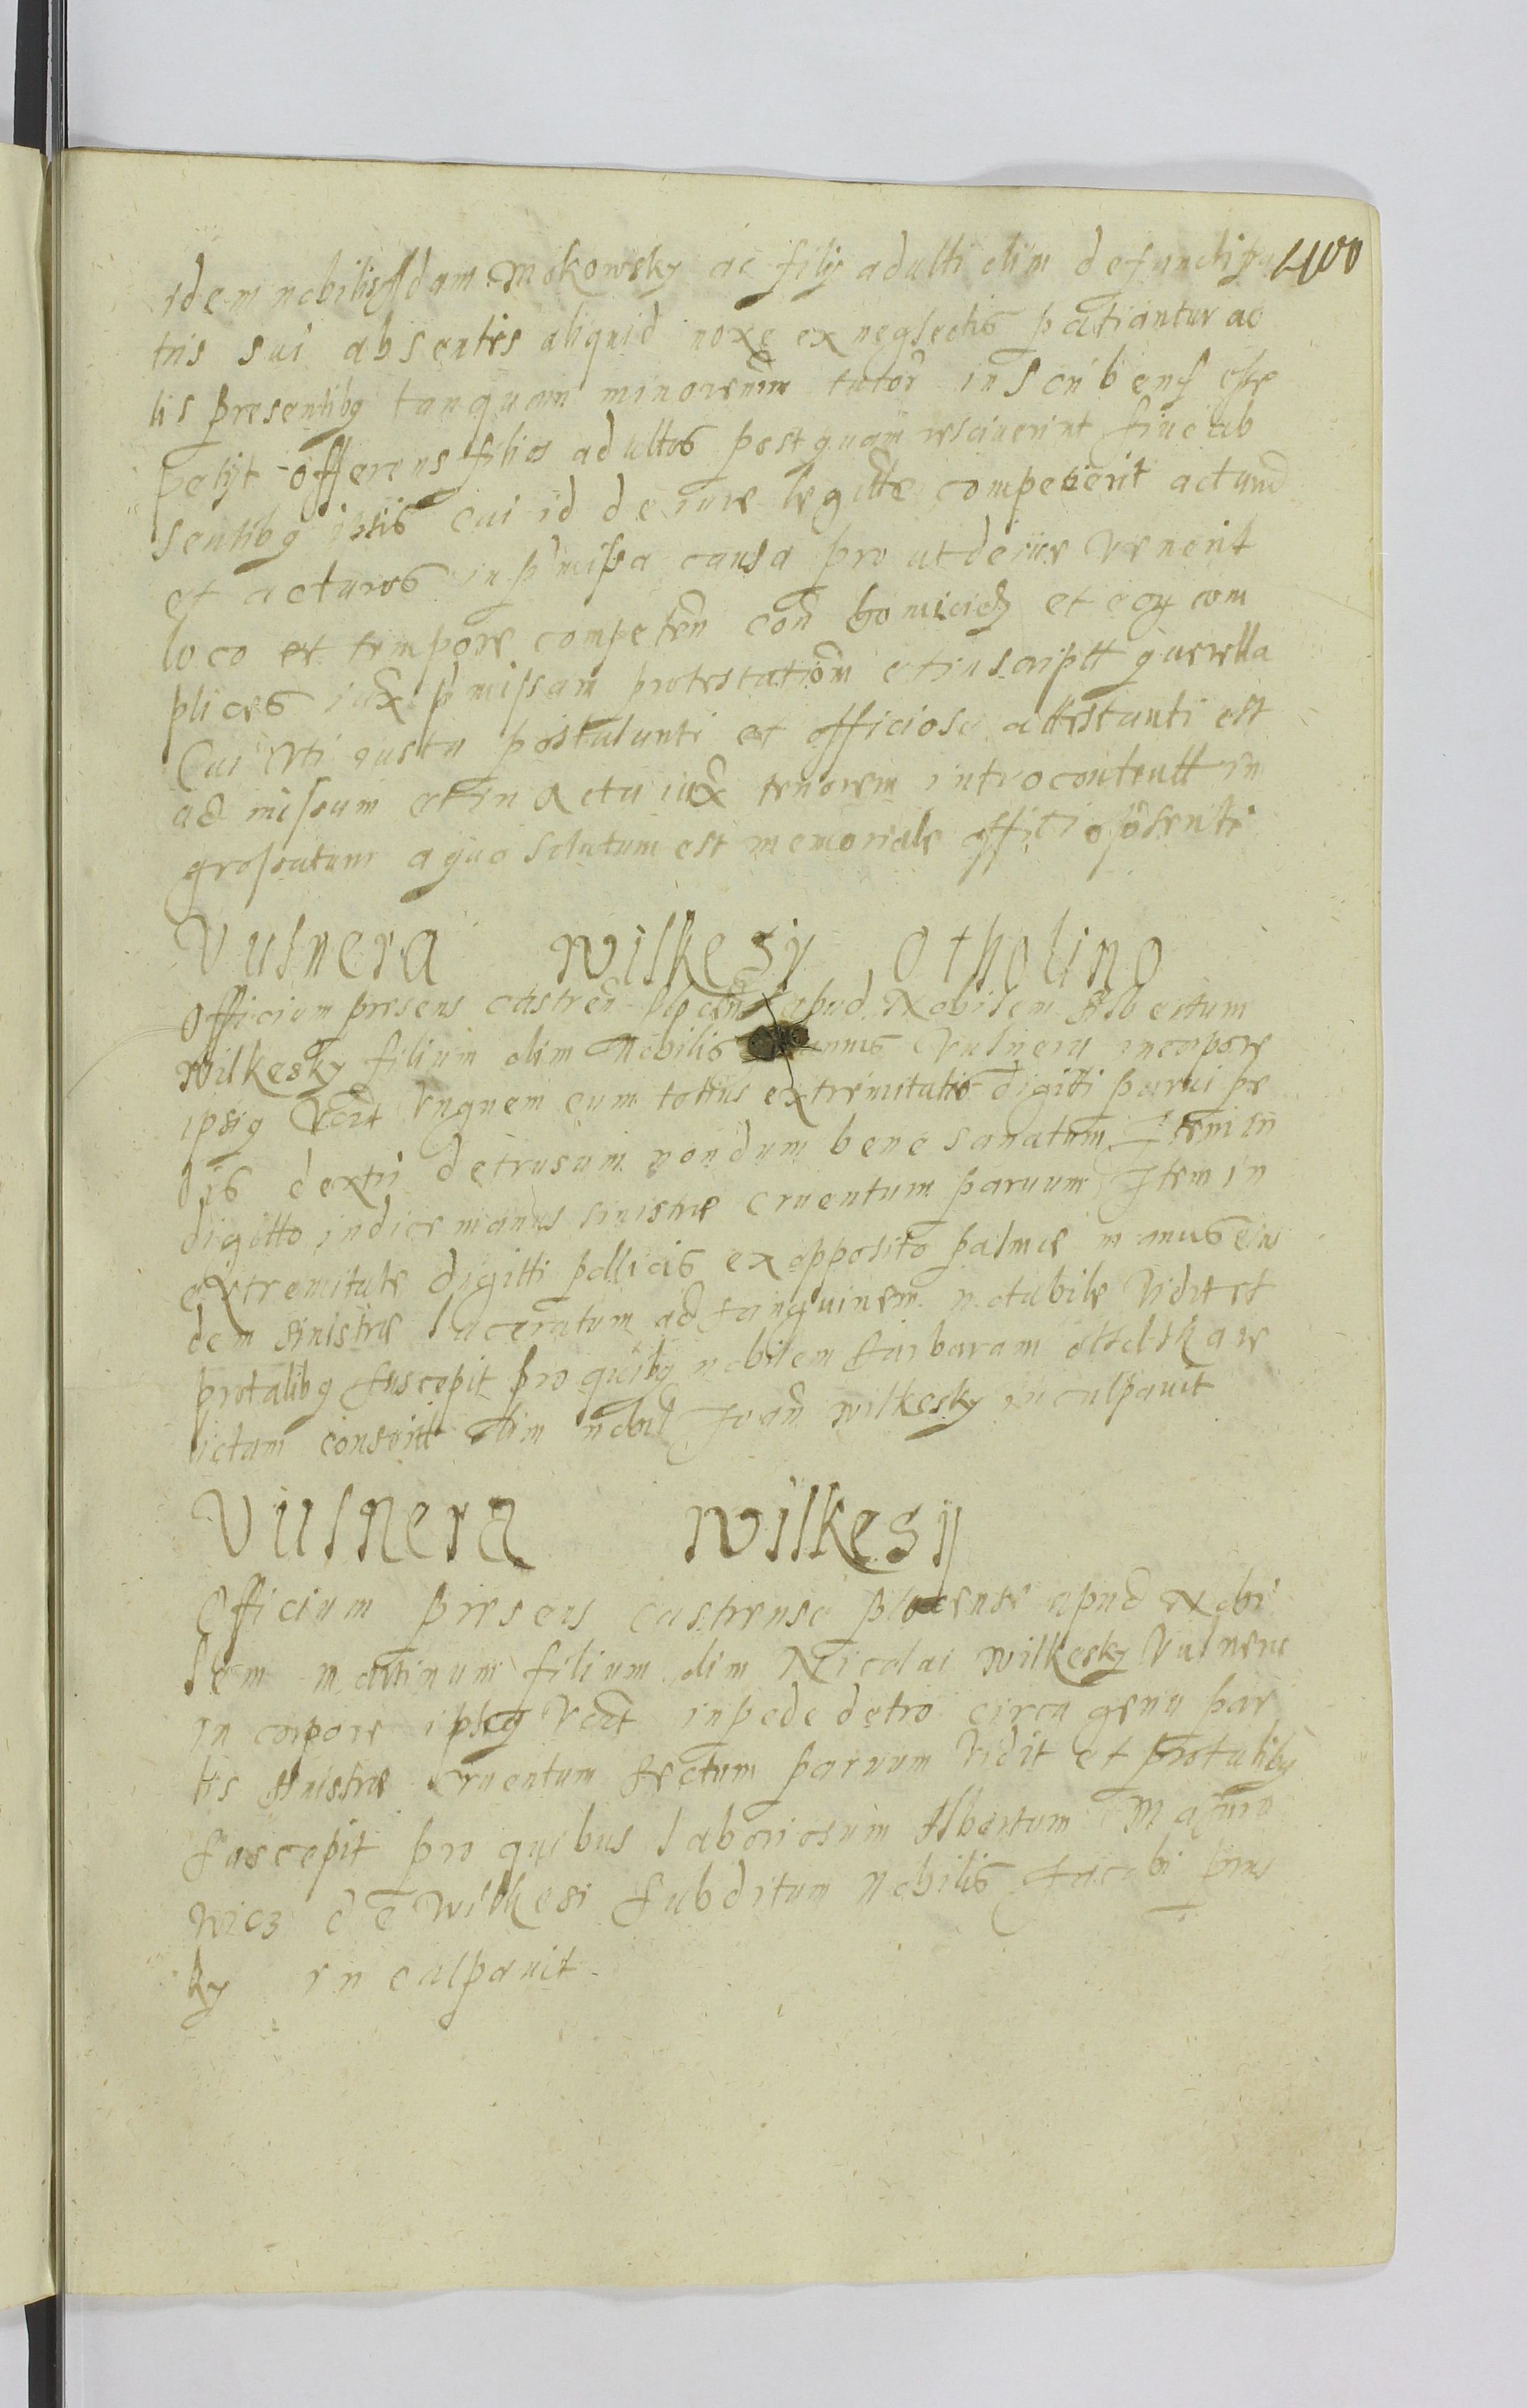 400
idem nobilis Adam Mokowsky ac filij adulti olim defuncti pa
tris sui absentes aliquid noxe ex neglectis patiantur ac
lis presentibq tanquam minorenum tutor inscribens esse
petijt offerens filios adultos postquam resciuerint siue ab
sentibq istis cui id de iure legitte competierit actum
et acturos in pmissa causa pro ut de iure venerit
loco et tempore competen con homicid et eoꝝ com
plices iux pmissam protestationem et inscriptt querella
Cui vti iusta postulanti et officiose attestanti est
admissum et in Acta iux tenorem introcontentt in
grossatum a quo solutum est memoriale officioso
Vulnera Wilkesy Otholino
Officium presens castren apud Nobilem Albertum
Wilkesky filium olim Nobilis Vulnera in corpore
ipsiq vdt vnguem cum totius extremitatis digitti parui pe
dis dextri detrusum nondum bene sanatum Item in
digitto indice manus sinistre cruentum paruum Item in
extremitate digitti pollicis ex opposito palmae manus eius
dem sinistrae laceratum ad sanguinem notabile vidit et
protalibq suscepit pro quibq nobilem Barbaram
lictam consortt olim nobil Joan Wilkesky inculpauit
Vulnera Wilkesy
Officium presens castrense plocense apud Nobi
lem Martinum filium olim Nicolai Wilkesky Vulnera
in corpore ipsiq vdt in pede detro circa genu par
tis sinistrae cruentum sectum paruum vidit et protalibq
suscepit pro quibus laboriosum Albertum
wicz de Wilkesi subditum Nobilis Jacobi
ky inculpauit